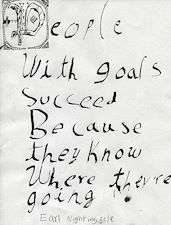 People
With goals
succeed
Because
they know
Where they're
going
Earl Nightingale